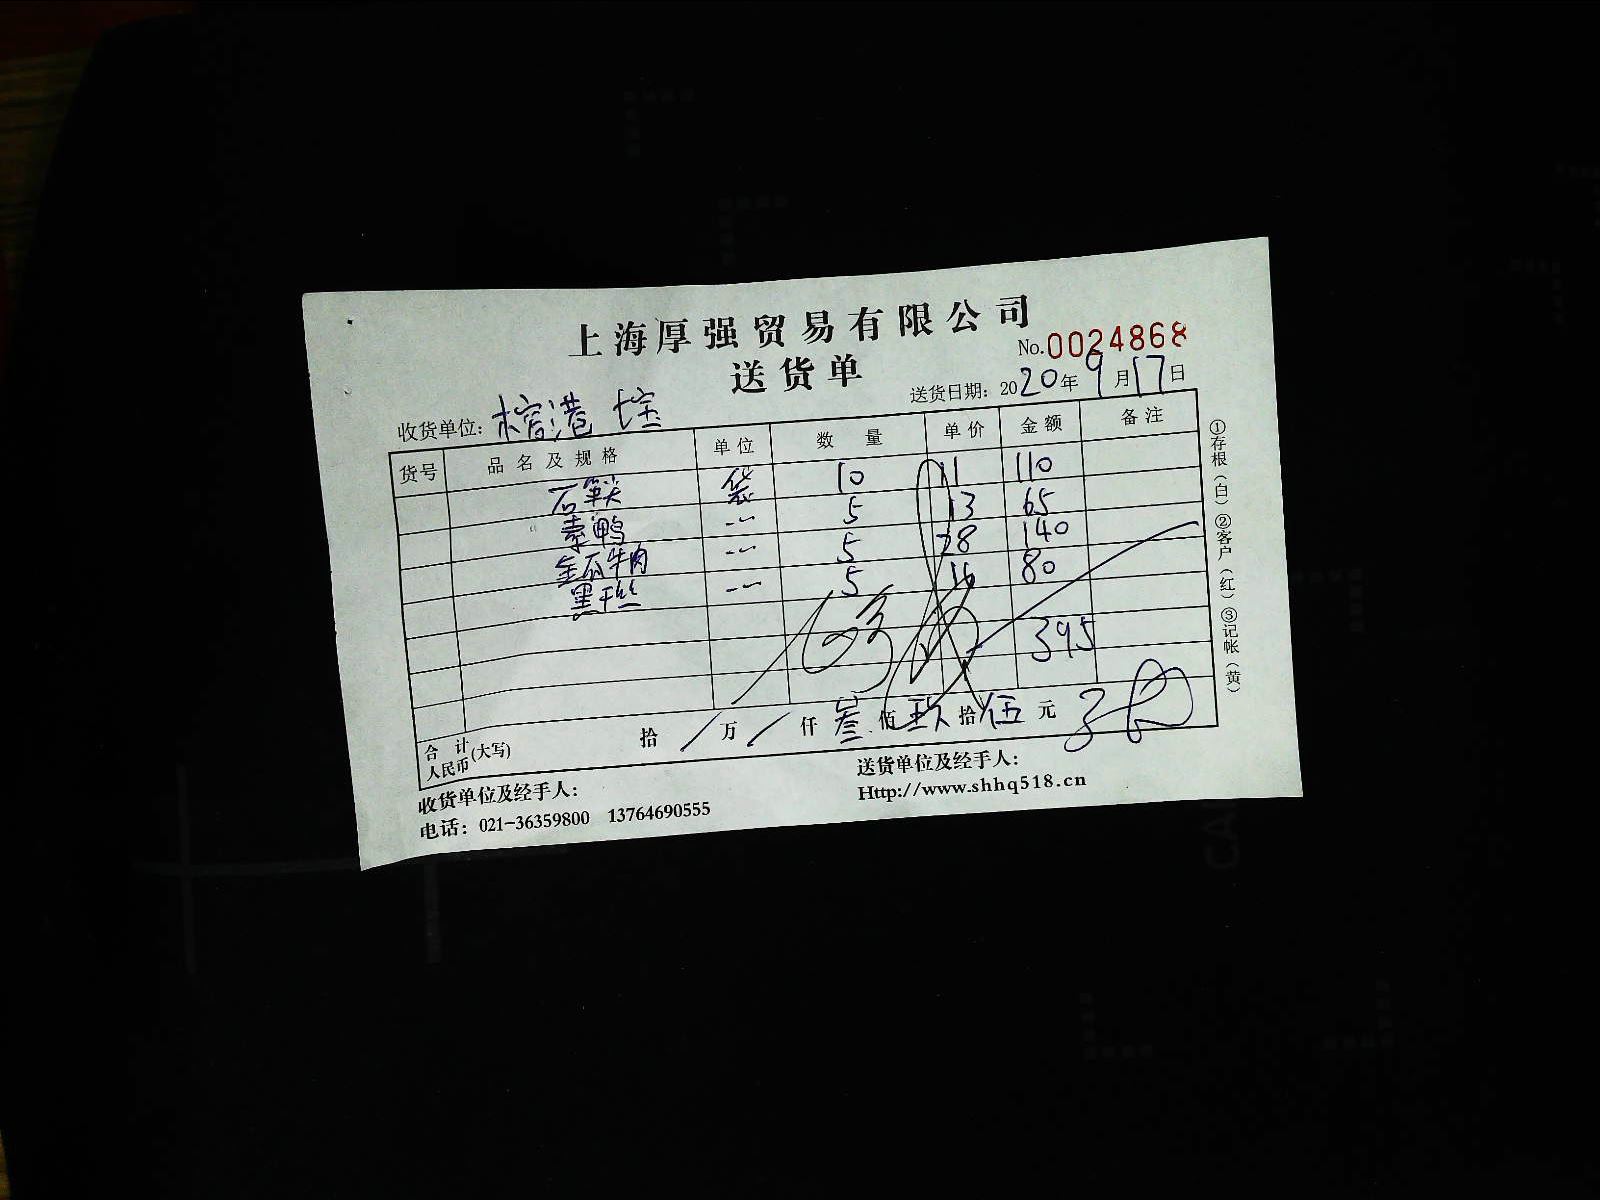 上海厚强贸易有限公司
送货单
No.0024868
收货单位：
送货日期：2020年9月17日
货号 品名及规格 单位 数量 单价 金额 备注
袋 10 11 110
素鸭 5 13 65
牛肉 5 28 140
黑干丝 5 16 80
395
合计人民币(大写) 拾/万/仟叁佰玖拾伍元
收货单位及经手人：
送货单位及经手人：
电话：021-36359800 13764690555
Http://www.shhq518.cn
①存根(白)②客户(红)③记帐(黄)